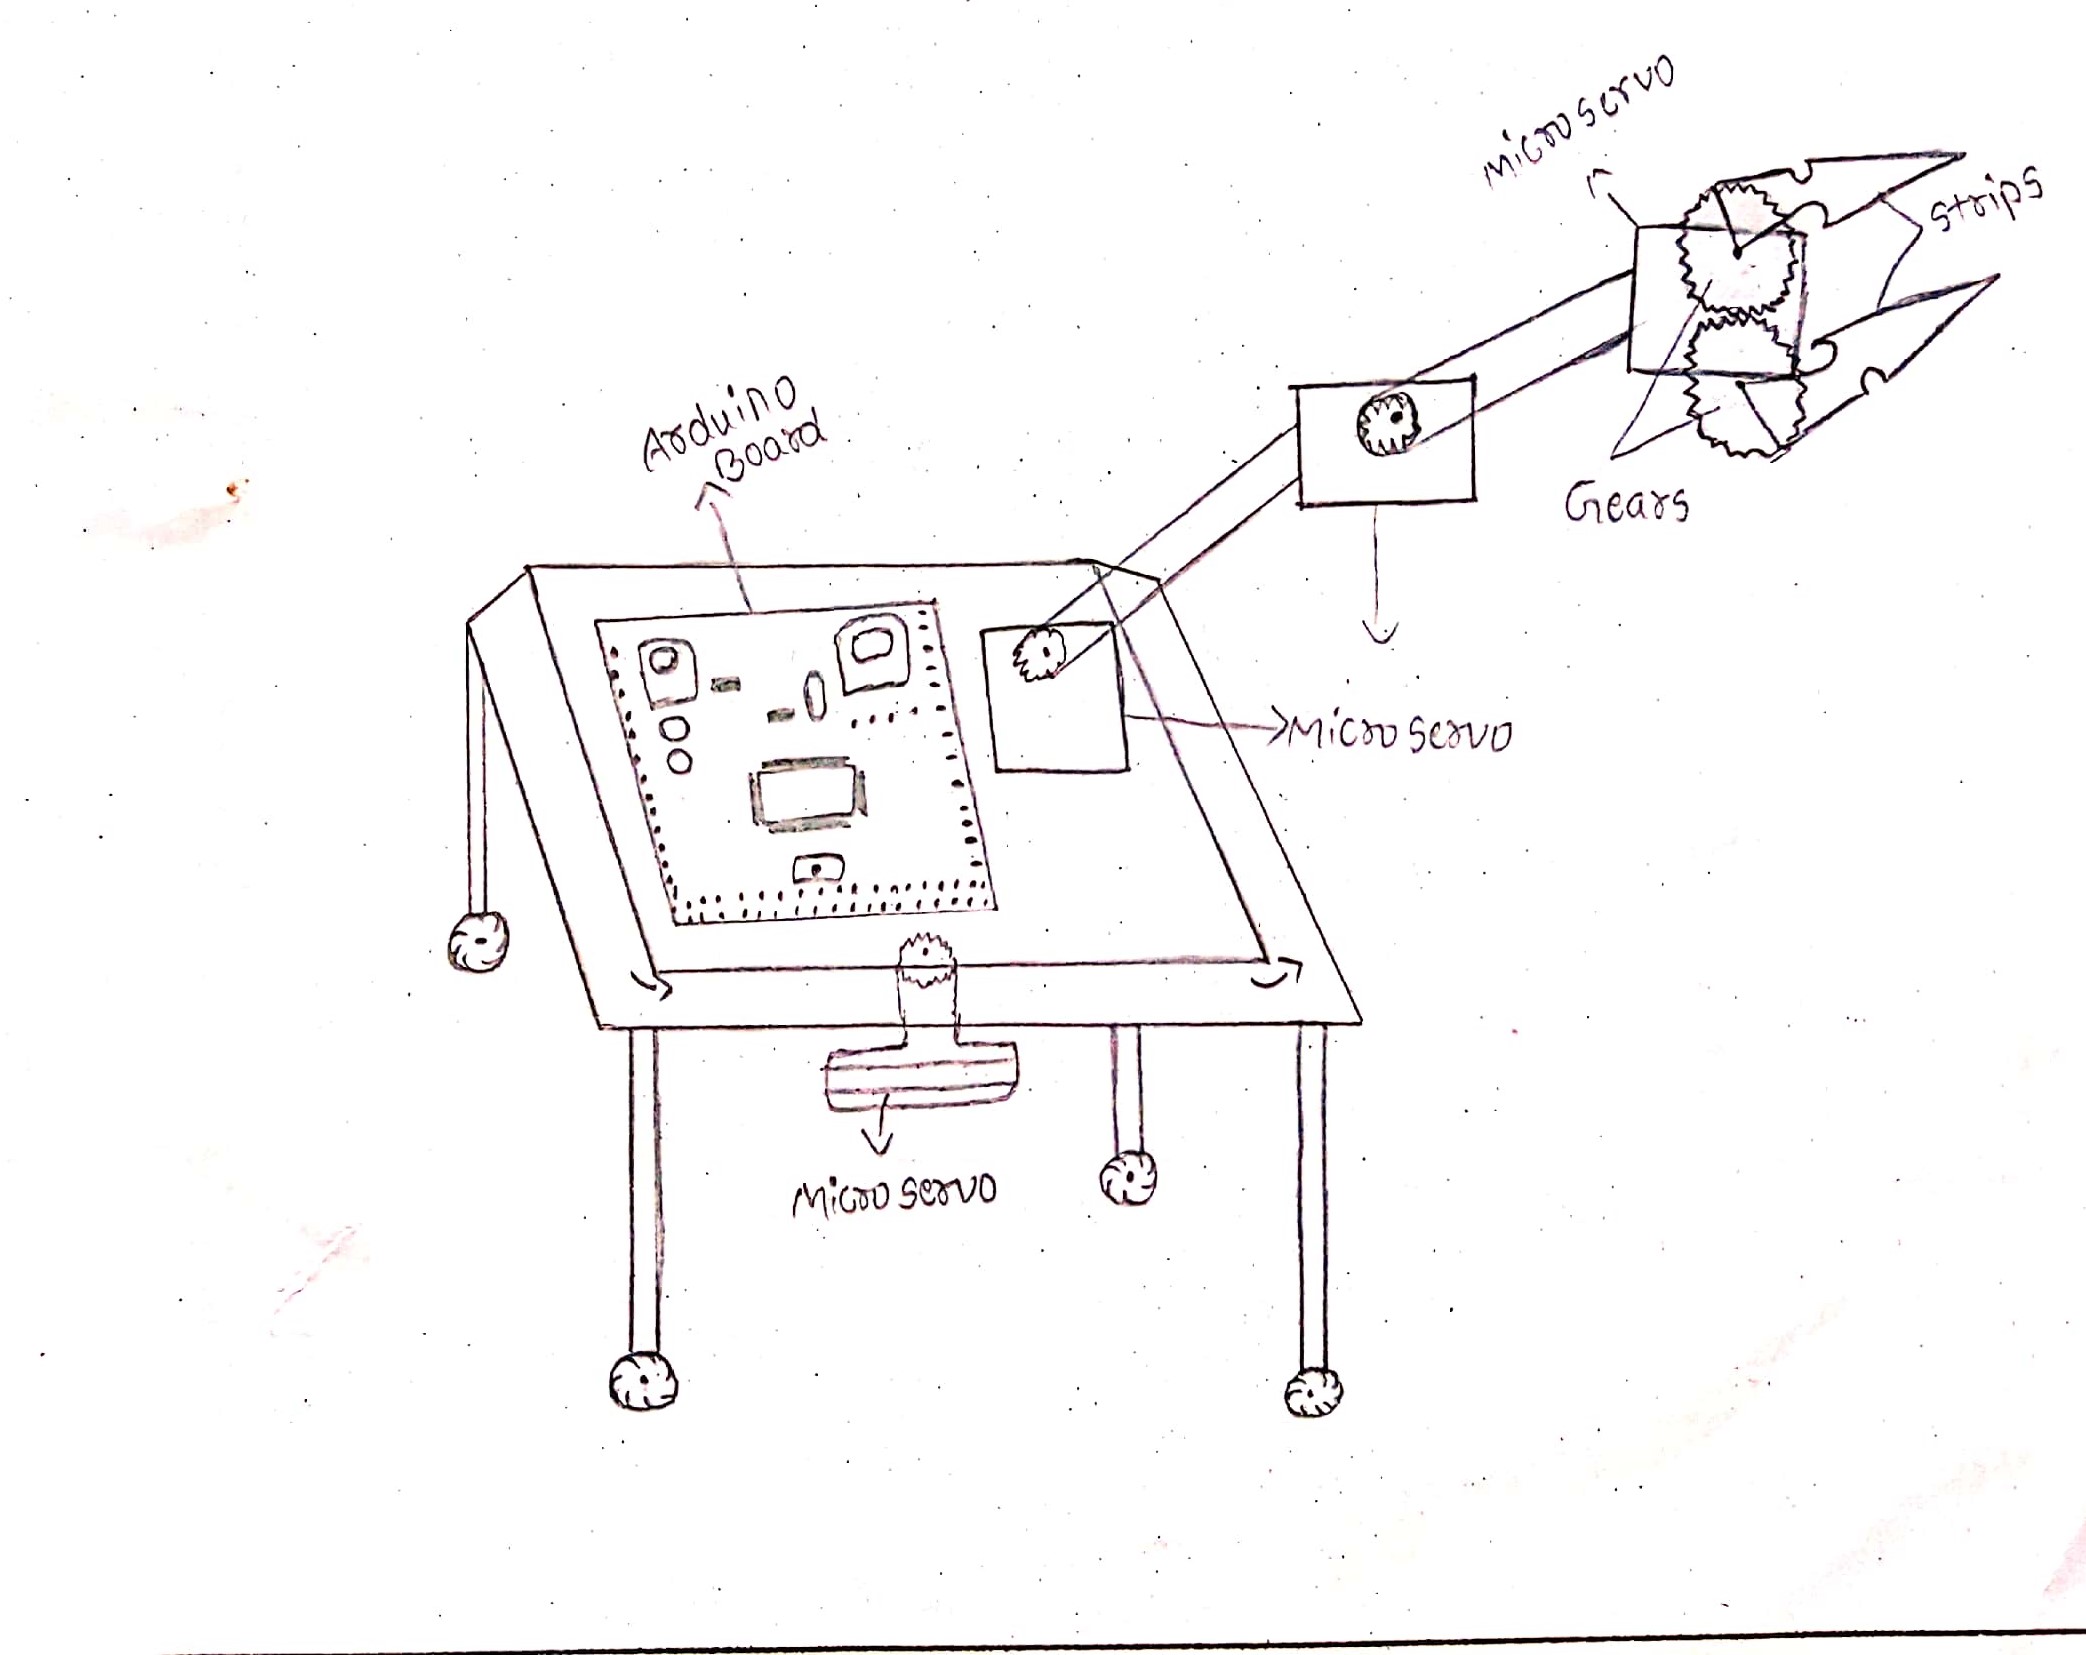 Micro servo
strips
Arduino
Board
Gears
Micro servo
Micro servo